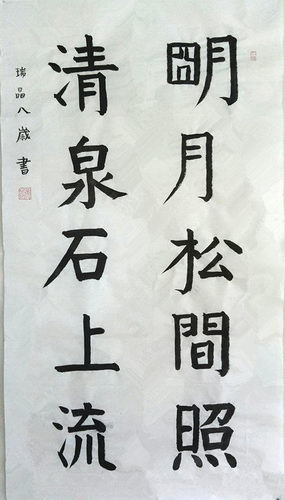 明月松間照
清泉石上流
瑞品八歲書